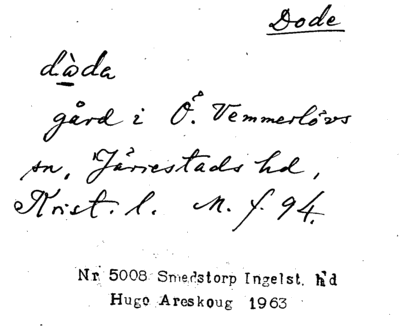 Dode
dàda
gård i Ö. Vemmerlövs
sn, Järrestads hd,
Krist. l. M. f. 94.
Nr 5008 Smedstorp Ingelst. hd
Hugo Areskoug 1963